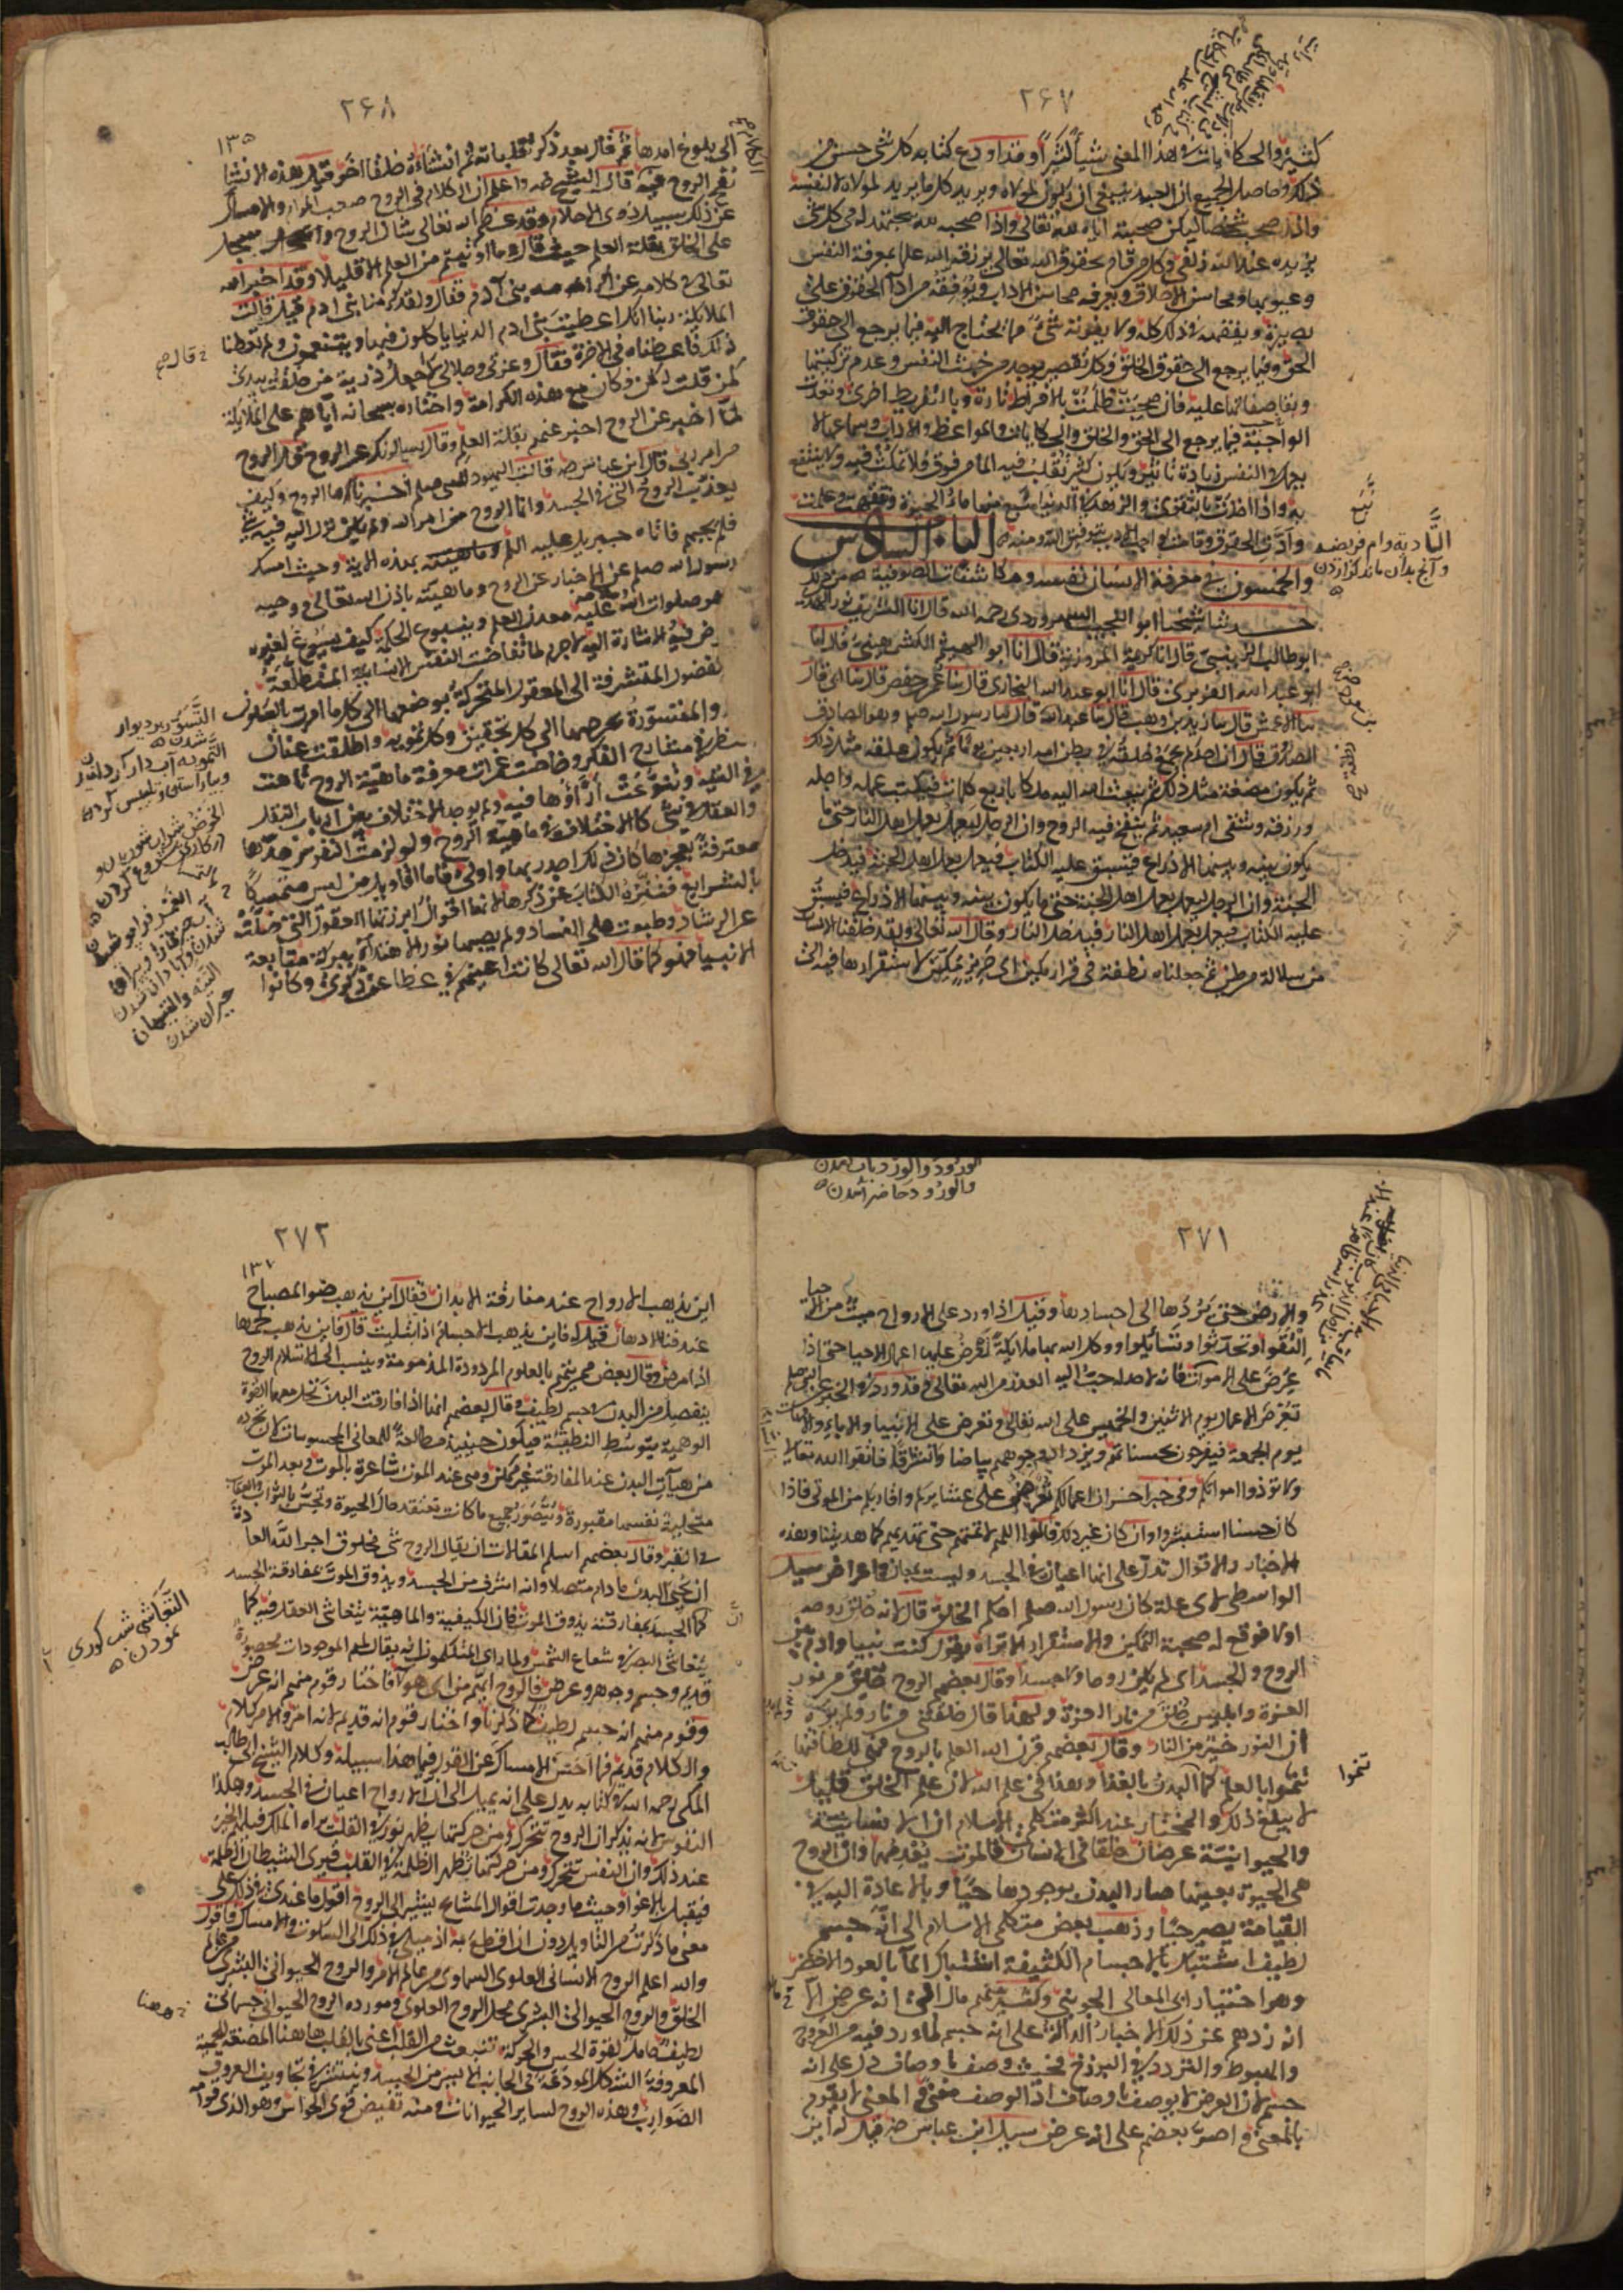 ٢۶٧
كثيرة والحكايات في هذا المعنى شيأ كثيراً وقد اودع كتابه كل شئ حسن من
ذلك وحاصل الجميع ان العبد ينبغي ان يكون لمولاه ويريد كل ما يريد لمولاه لا لنفسه
واذا صحب شخصا ليكن صحبته اياه لله تعالى واذا صحبه لله يجتهد له في كل شئ
يزيده عند الله زلفى وكل من قام بحقوق الله تعالى يرزقه الله علما بمعرفة النفس
وعيوبها ومحاسن الاخلاق ويعرفه محاسن الاداب ويوفقه من اداء الحقوق على
بصيرة ويفقهه في ذلك كله ولا يفوته شئ مما يحتاج اليه فيما يرجع الى حقوق
الحق وفيما يرجع الى حقوق الخلق وكل تقصير يوجد من خبث النفس وعدم تزكيتها
وبقا صفاتها عليه فان صحبت ظلمت بالافراط تارة وبالتفريط اخرى وتعدت
الواجب فيما يرجع الى الحق والخلق والحكايات والمواعظ والاداب وسماعها لا
يعمل في النفس زيادة تاثير ويكون كبئر يقلب فيه الماء من فوق فلا يمكث فيه ولا ينتفع
به واذا اخذت بالتقوى والزهد في الدنيا نبع منها ماء الحيوة وتفقهت وعلمت
وادت الحقوق وقامت بواجب الادب بتوفيق الله ومنه الباب السادس
والخمسون في معرفة الانسان نفسه ومكاشفات الصوفية من ذلك
حدثنا شيخنا ابو النجيب السهروردي رحمه الله قال انا الشريف نور الهدى
ابو طالب الزينبي قال انا كريمة المروزية قال انا ابو الهيثم الكشميهني قال انا
ابو عبد الله الفربري قال انا ابو عبد الله البخاري قال ثنا عمر بن حفص قال ثنا ابي قال
ثنا الاعمش قال ثنا زيد بن وهب قال ثنا عبد الله قال ثنا رسول الله صلم وهو الصادق
المصدوق قال ان احدكم يجمع خلقه في بطن امه اربعين يوما ثم يكون علقة مثل ذلك
ثم يكون مضغة مثل ذلك ثم يبعث الله اليه ملكا باربع كلمات فيكتب عمله واجله
ورزقه وشقي ام سعيد ثم ينفخ فيه الروح وان الرجل ليعمل بعمل اهل النار حتى ما
يكون بينه وبينها الا ذراع فيسبق عليه الكتاب فيعمل بعمل اهل الجنة فيدخل
الجنة وان الرجل ليعمل بعمل اهل الجنة حتى ما يكون بينه وبينها الا ذراع فيسبق
عليه الكتاب فيعمل بعمل اهل النار فيدخل النار وقال الله تعالى ولقد خلقنا الانسان
من سلالة من طين ثم جعلناه نطفة في قرار مكين اي حريز مكين لاستقرارها فيه الى
٢۶٨
١٣٥
الى بلوغ امدها ثم قال بعد ذكر تقلباته ثم انشأناه خلقا اخر قيل هذه الانشا
نفخ الروح فيه قال الشيخ رضه واعلم ان الكلام في الروح صعب المرام والامساك
عن ذلك سبيل ذوي الاحلام وقد عظم الله تعالى شان الروح واسجل
على الخلق بقلة العلم حيث قال وما اوتيتم من العلم الا قليلا وقد اخبر الله
تعالى في كلامه عن اكرامه بني آدم فقال ولقد كرمنا بني ادم قيل قالت
الملايكة ربنا انك اعطيت بني ادم الدنيا ياكلون فيها ويتنعمون ولم تعطنا
ذلك فاعطناه في الاخرة فقال وعزتي وجلالي لا اجعل ذرية من خلقت بيدي
كمن قلت له كن فكان مع هذه الكرامة واختاره سبحانه اياهم على الملايكة
لما اخبر عن الروح اخبر عنهم بقلة العلم وقال يسالونك عن الروح قل الروح
من امر ربي قال ابن عباس رضه قالت اليهود للنبي صلم اخبرنا ما الروح وكيف
يعذب الروح التي في الجسد وانما الروح من امر الله ولم يكن نزل اليه فيه شئ
فلم يجبهم فاتاه جبريل عليه السلم بهذه الاية وحيث امسك
رسول الله صلم عن الاخبار عن الروح وماهيته باذن الله تعالى ووحيه
هو صلوات الله عليه معدن العلم وينبوع الحكمة كيف يسوغ لغيره
الخوض فيه والاشارة اليه لا جرم لما تقاضت النفس الانسانية المتطلعة
للفضول المتشرفة الى المعقول المتحركة بوضعها الى كل ما امرت بالسكون
والمتسورة بحرصها الى كل تحقيق وكل تمويه واطلقت عنان
النظر في مسارح الفكر وخاضت غمرات معرفة ماهية الروح تاهت
في التيه وتنوعت آراؤها فيه ولم يوجد الاختلاف بين ارباب النقل
والعقل في شئ كالاختلاف في ماهية الروح ولو لزمت النفوس حدها
معترفة بعجزها كان ذلك اجدر بها واولى فاما اقاويل من ليس متمسكا
بالشرايع فننزه الكتاب عن ذكرها لانها اقوال ابرزتها العقول التي ضلت
عن الرشاد وطبعت على الفساد ولم يصبها نور الاهتداء ببركة متابعة
الانبيا فهم كما قال الله تعالى كانت اعينهم في غطا عن ذكري وكانوا
التسور بر ديوار شدن
٢٧١
والارض حتى يردها الى اجسادها وقيل اذا ورد على الارواح ميت من الاحيا
التقوا وتحدثوا وتسائلوا ووكل الله بها ملايكة تعرض عليها اعمال الاحيا حتى اذا
عرض على الاموات
تعرض الاعمال يوم الاثنين والخميس على الله تعالى وتعرض على الانبيا والاباء والامهات
يوم الجمعة فيفرحون بحسناتهم ويزداد وجوههم بياضا وتشرقا فاتقوا الله تعالى
ولا تؤذوا امواتكم وفي خبر اخر ان اعمالكم تعرض على عشايركم واقاربكم من الموتى فاذا
كان حسنا استبشروا وان كان غير ذلك قالوا اللهم لا تمتهم حتى تهديهم كما هديتنا وهذه
الاخبار والاقوال تدل على انها اعيان في الجسد وليست بمعان واعراض سيل
الواسطي لاي علة كان رسول الله صلم احكم الخلق قال لانه خلق روحه
اولا فوقع له صحبة التمكين والاستقرار الا تراه يقول كنت نبيا وادم بين
الروح والجسد اي لم يكن روحا ولا جسدا وقال بعضهم الروح خلق من نور
العزة وابليس خلق من نار العزة ولهذا قال خلقتني من نار ولم يدر
ان النور خير من النار وقال بعضهم قرن الله العلم بالروح فهي للطافتها
تنموا بالعلم كما ينمو البدن بالغذاء وهذا في علم الله لان علم الخلق قليل
لا يبلغ ذلك والمختار عند اكثر متكلمي الاسلام ان الانسانية
والحيوانية عرضان خلقا في الانسان والموت يعدمهما وان الروح
هي الحيوة بعينها صار البدن بوجودها حيا وبالاعادة اليه في
القيامة يصير حيا وذهب بعض متكلمي الاسلام الى انه جسم
لطيف اشتبك بالاجسام الكثيفة اشتباك الماء بالعود الاخضر
وهو اختيار ابي المعالي الجويني وكثير منهم مال الى انه عرض الا
انه ردهم عن ذلك الاخبار الدالة على انه جسم لما ورد فيه من العروج
والهبوط والتردد في البرزخ فحيث وصف باوصاف دل على انه
جسم لان العرض لا يوصف باوصاف اذ الوصف معنى والمعنى لا يقوم
بالمعنى واصر بعضهم على انه عرض سيل ابن عباس رضه قيل له اين
٢٧٢
١٣٧
اين يذهب الارواح عند مفارقة الابدان فقال اين يذهب ضوء المصباح
عند فنا الادهان قيل له فاين يذهب الاجسام اذا بليت قال فاين يذهب لحمها
اذا مرضت وقال بعض من يتهم بالعلوم المردودة المذمومة وينسب الى الاسلام الروح
ينفصل من البدن في جسم لطيف وقال بعضهم انها اذا فارقت البدن تحل معها القوة
الوهمية بتوسط النطقية فيكون حينئذ مطالعة للمعاني والمحسوسات لان تجرده
من هيآت البدن عند المفارقة غير ممكن وهي عند الموت شاعرة بالموت وبعد الموت
متخيلة نفسها مقبورة وتتصور جميع ما كانت تعتقده حال الحيوة وتحس بالثواب والعقاب
في القبر وقال بعضهم اسلم المقالات ان يقال الروح شئ مخلوق اجرى الله العادة
ان يحيى البدن ما دام متصلا وانه اشرف من الجسد ويذوق الموت بمفارقة الجسد
كما ان الجسد بمفارقته يذوق الموت فان الكيفية والماهية يتعاشى العقل فيهما كما
يتعاشى البصر في شعاع الشمس ولما راى المتكلمون انه يقال لهم الموجودات محصورة
قديم وجسم وجوهر وعرض فالروح ايهم من هؤلاء فاختار قوم منهم انه عرض
وقوم منهم انه جسم لطيف كما ذكرنا واختار قوم انه قديم لانه امر والامر كلام
والكلام قديم فما احسن الامساك عن القول فيما هذا سبيله وكلام الشيخ ابي طالب
المكي رحمه الله في كتابه يدل على انه يميل الى ان الارواح اعيان في الجسد وهكذا
النفوس لانه يذكر ان الروح تتحرك ومن حركتها يظهر نور في القلب يراه الملك فيلهم الخير
عند ذلك وان النفس تتحرك ومن حركتها يظهر الظلمة في القلب فيرى الشيطان الظلمة
فيقبل بالاغوا وحيث وجدت اقوال المشايخ يشير الى الروح اقول ما عندي في ذلك على
معنى ما ذكرت من التاويل دون ان اقطع به اذ ميلي في ذلك الى السكوت والامساك فاقول
والله اعلم الروح الانساني العلوي السماوي من عالم الامر والروح الحيواني البشري من عالم
الخلق والروح الحيواني البشري محل الروح العلوي ومورده الروح الحيواني جسماني
لطيف حامل لقوة الحس والحركة تنبعث من القلب اعني بالقلب هاهنا المضغة اللحمية
المعروفة الشكل المودعة في الجانب الايسر من الجسد وينتشر في تجاويف العروق
الضوارب وهذه الروح لساير الحيوانات ومنه تفيض قوى الحواس وهو الذي قوامه
التعاشي شب كوري نمودن
تنموا